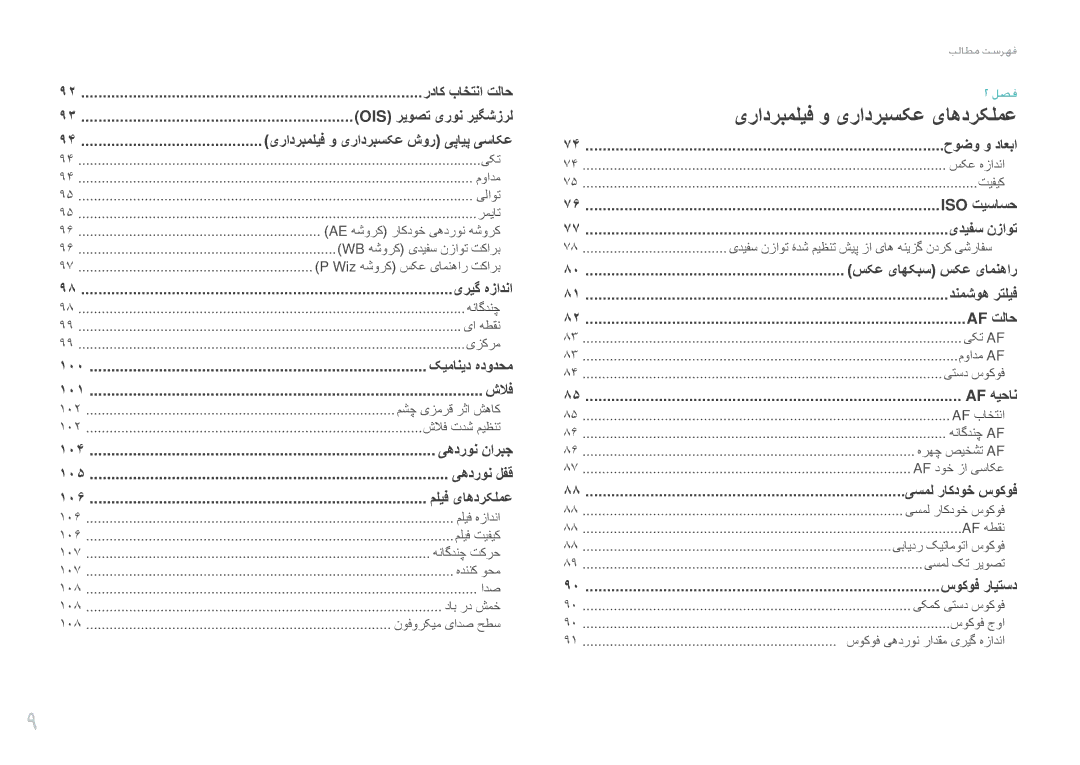 فهرست مطالب
فصل ۲
عملکردهای عکسبرداری و فیلمبرداری
ابعاد و وضوح ۷۴
اندازه عکس ۷۴
کیفیت ۷۵
حساسیت ISO ۷۶
توازن سفیدی ۷۷
سفارشی کردن گزینه های از پیش تنظیم شدۀ توازن سفیدی ۷۸
راهنمای عکس (سبکهای عکس) ۸۰
فیلتر هوشمند ۸۱
حالت AF ۸۲
AF تکی ۸۳
AF مداوم ۸۳
فوکوس دستی ۸۴
ناحیه AF ۸۵
انتخاب AF ۸۵
AF چندگانه ۸۶
AF تشخیص چهره ۸۶
عکاسی از خود AF ۸۷
فوکوس خودکار لمسی ۸۸
فوکوس خودکار لمسی ۸۸
نقطه AF ۸۸
فوکوس اتوماتیک ردیابی ۸۸
تصویر تک لمسی ۸۹
دستیار فوکوس ۹۰
فوکوس دستی کمکی ۹۰
اوج فوکوس ۹۰
اندازه گیری مقدار نوردهی فوکوس ۹۱
حالت انتخاب کادر ۹۲
لرزشگیر نوری تصویر (OIS) ۹۳
عکاسی پیاپی (روش عکسبرداری و فیلمبرداری) ۹۴
تکی ۹۴
مداوم ۹۴
توالی ۹۵
تایمر ۹۵
کروشه نوردهی خودکار (کروشه AE) ۹۶
براکت توازن سفیدی (کروشه WB) ۹۶
براکت راهنمای عکس (کروشه P Wiz) ۹۷
اندازه گیری ۹۸
چندگانه ۹۸
نقطه ای ۹۹
مرکزی ۹۹
محدوده دینامیک ۱۰۰
فلاش ۱۰۱
کاهش اثر قرمزی چشم ۱۰۲
تنظیم شدت فلاش ۱۰۲
جبران نوردهی ۱۰۴
قفل نوردهی ۱۰۵
عملکردهای فیلم ۱۰۶
اندازه فیلم ۱۰۶
کیفیت فیلم ۱۰۶
حرکت چندگانه ۱۰۷
محو کننده ۱۰۷
صدا ۱۰۸
خمش در باد ۱۰۸
سطح صدای میکروفون ۱۰۸
۹